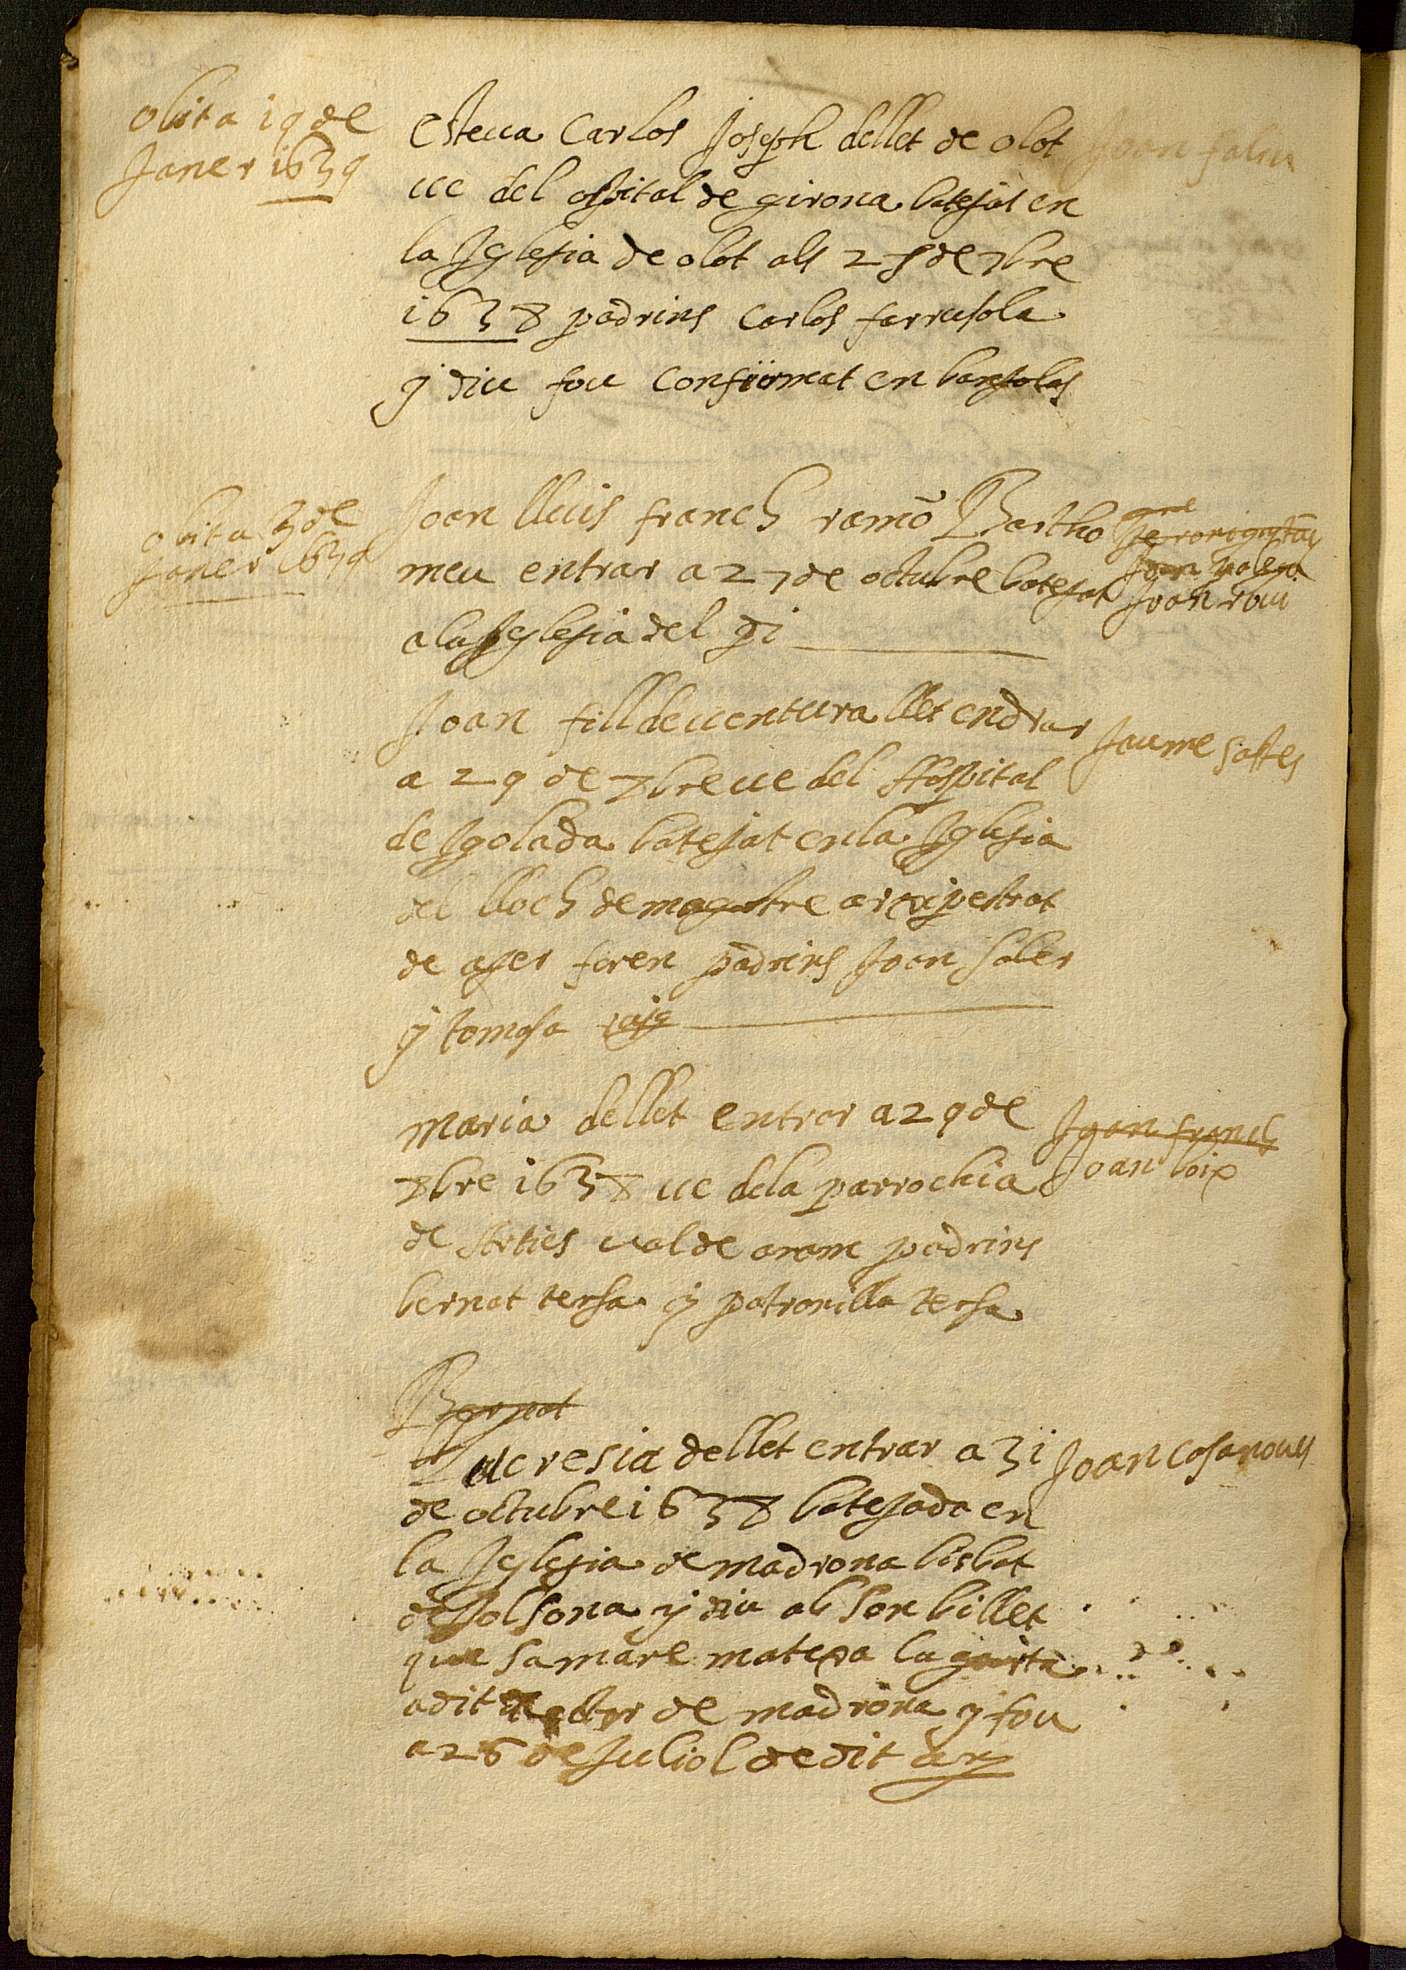 obit a 19 de
Janer 1639
esteva Carlos Joseph dellet de olot
ve del ospital de girona batejat en
la Iglesia de olot als 25 de 7bre
1638 padrins Carlos farrusola
y diu fou confirmat en banyolas
obit a 3 de
Janer 1639
Joan lluis franch ramō Bartho
meu entrar a 27 de octubre batejat
a la Iglesia del pi
Joan valen
Joan roui
Joan fill de ventura llet endrar
a 29 de 7bre ve del Hospital
de Igolada batejat en la Iglesia
del lloch de arxipestrat
de ager foren padrins Joan soler
y tomasa
Jaume sastes
maria dellet entrar a 29 de
7bre 1638 ve de la parrochia
de val de aram padrins
bernat tersa y patronilla tersa
Joan franch
Joan boix
Bernat
Lucresia dellet entrar a 31
de octubre 1638 batejada en
la Iglesia de madrona bisbat
de solsona y diu ab son billet
que sa mare matexa la
a dit Rector de madrona y fou
a 26 de Juliol de dit any
Joan Casanoves